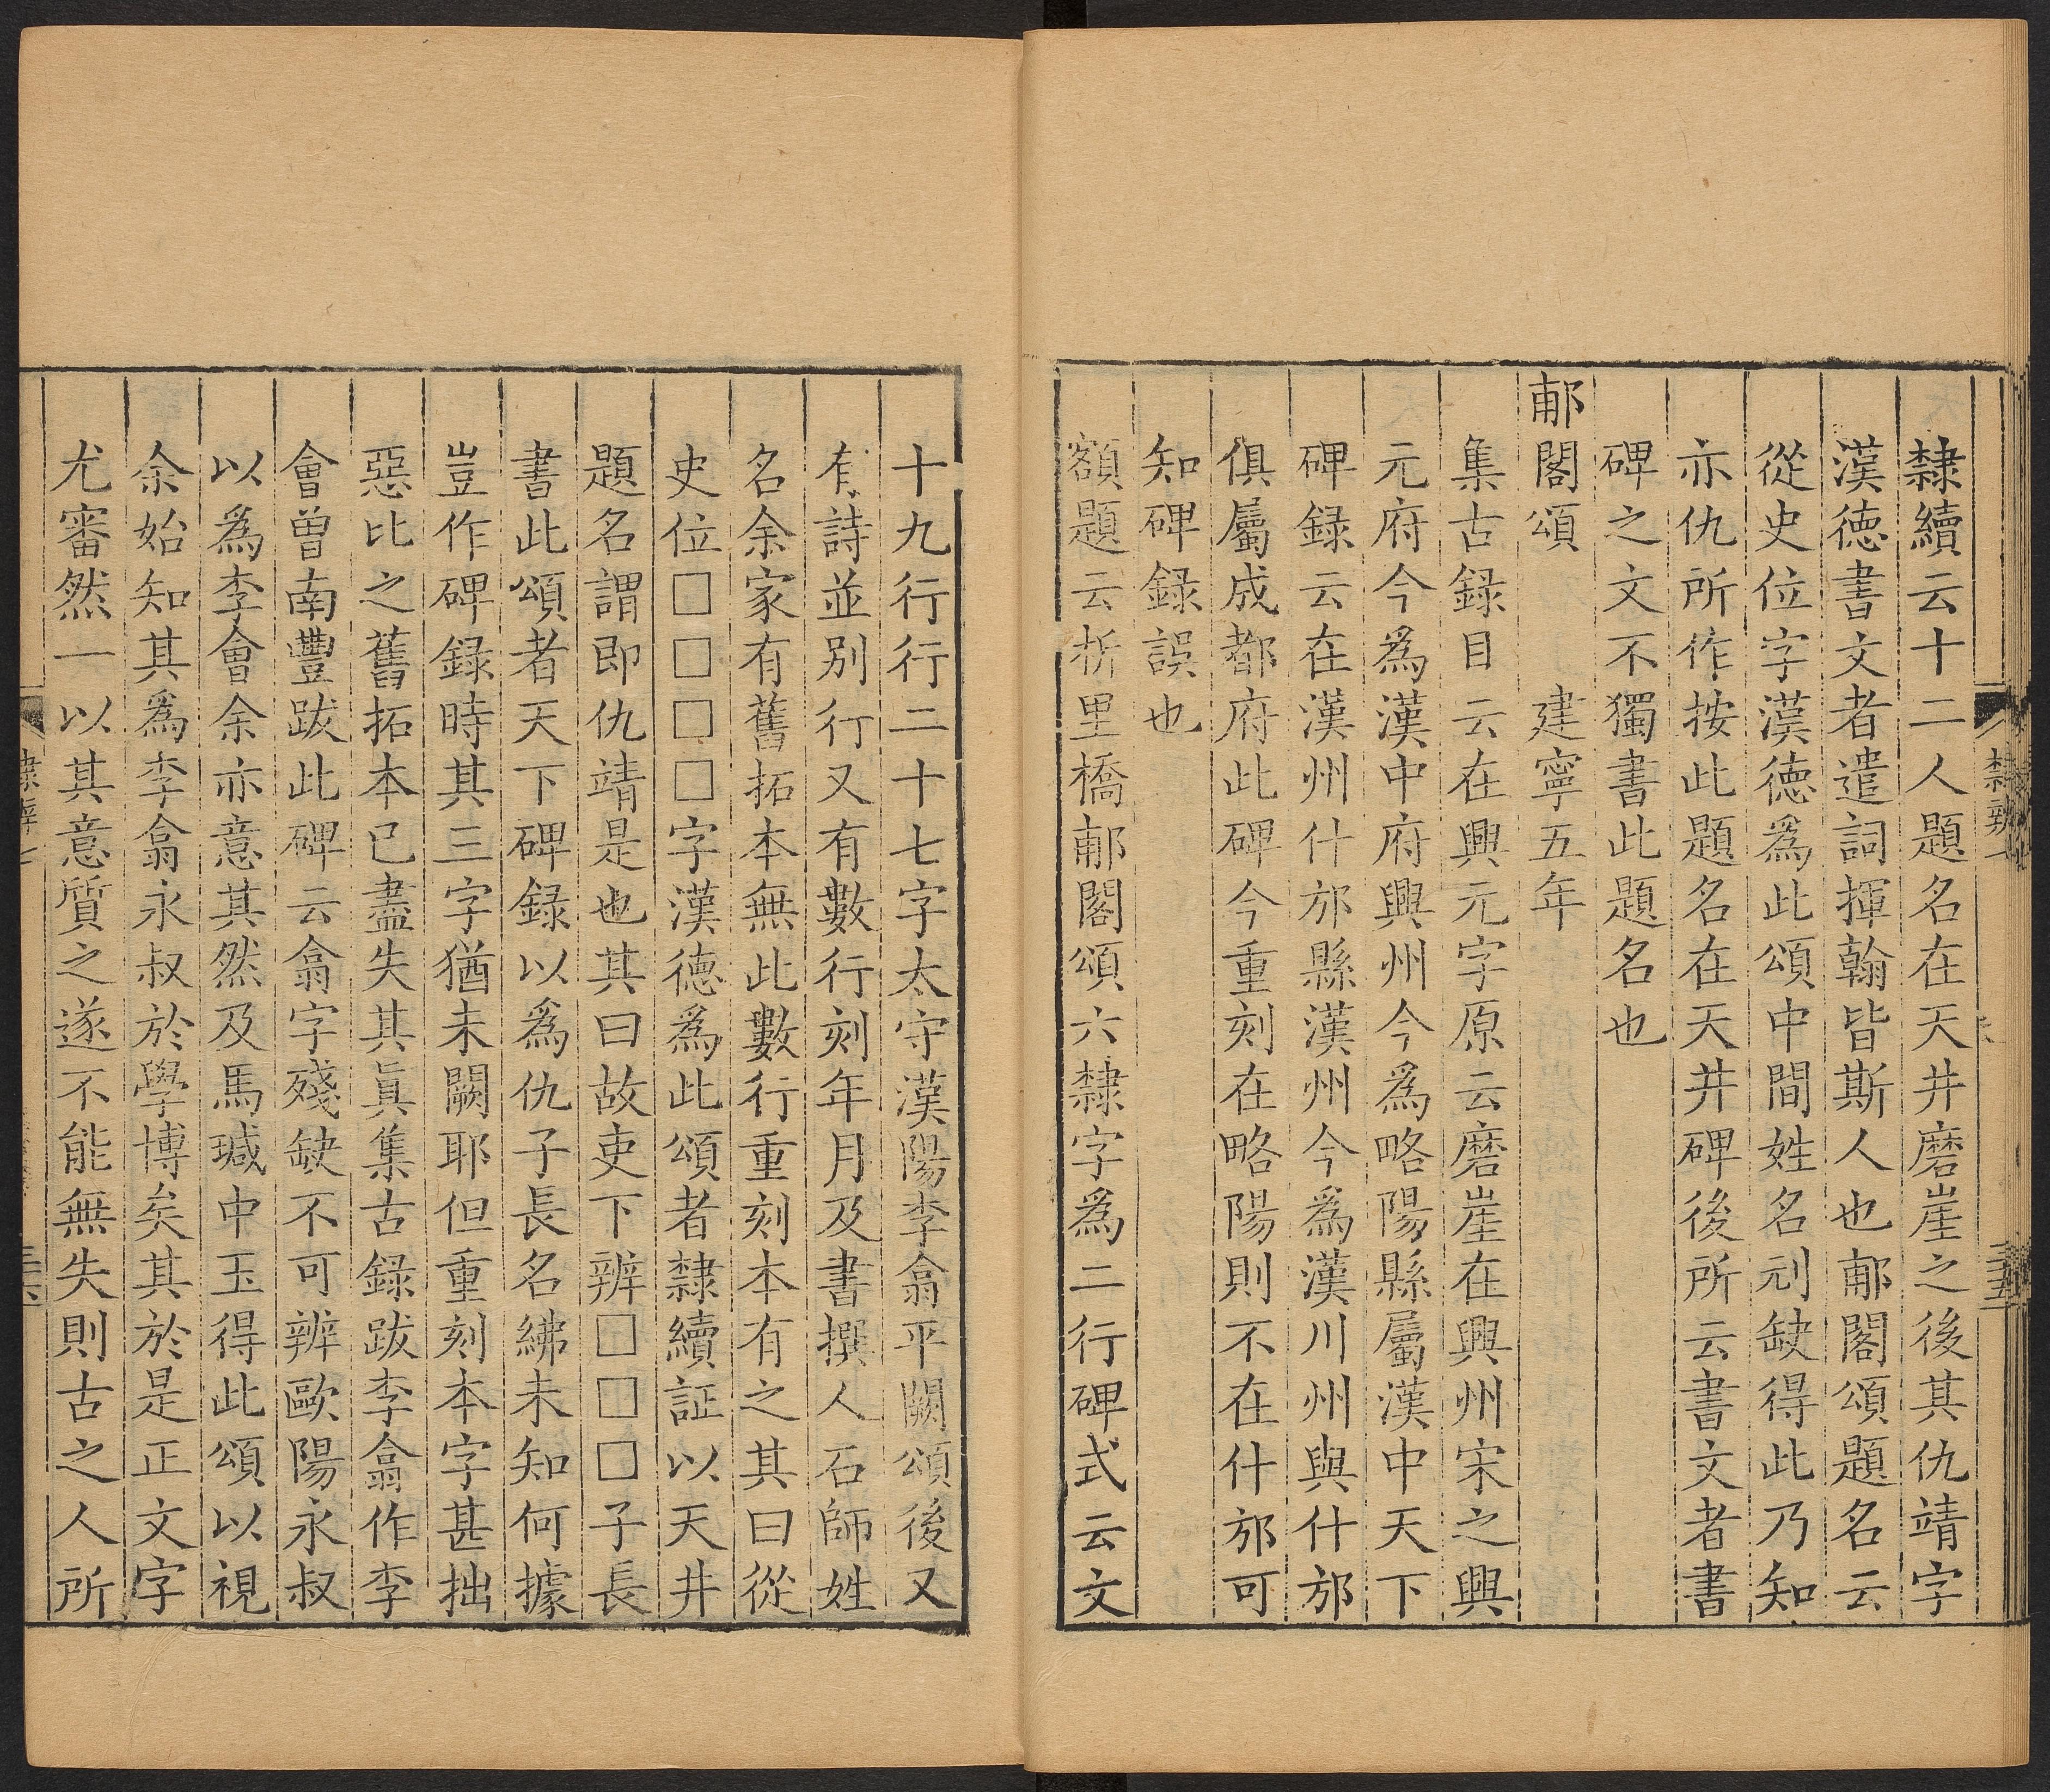 隸續云十二人題名在天井磨崖之後其仇靖字
漢德書文者遣詞揮翰皆斯人也郙閣頌題名云
從史位字漢德爲此頌中間姓名刓缺得此乃知
亦仇所作按此題名在天井碑後所云書文者書
碑之文不獨書此題名也
郙閣頌　建寧五年
集古録目云在興元字原云磨崖在興州宋之興
元府今爲漢中府興州今爲略陽縣屬漢中天下
碑録云在漢州什邡縣漢州今爲漢川州與什邡
俱屬成都府此碑今重刻在略陽則不在什邡可
知碑録誤也
額題云析里橋郙閣頌六隸字爲二行碑式云文
十九行行二十七字太守漢陽李翕平闕頌後又
有詩並別行又有數行刻年月及書撰人石師姓
名余家有舊拓本無此數行重刻本有之其曰從
史位□□□□字漢德爲此頌者隸續証以天井
題名謂即仇靖是也其曰故吏下辨□□□子長
書此頌者天下碑録以爲仇子長名紼未知何據
豈作碑録時其三字猶未闕耶但重刻本字甚拙
惡比之舊拓本已盡失其眞集古録跋李翕作李
會曾南豐跋此碑云翕字殘缺不可辨歐陽永叔
以爲李會余亦意其然及馬瑊中玉得此頌以視
余始知其爲李翕永叔於學博矣其於是正文字
尤審然一以其意質之遂不能無失則古之人所